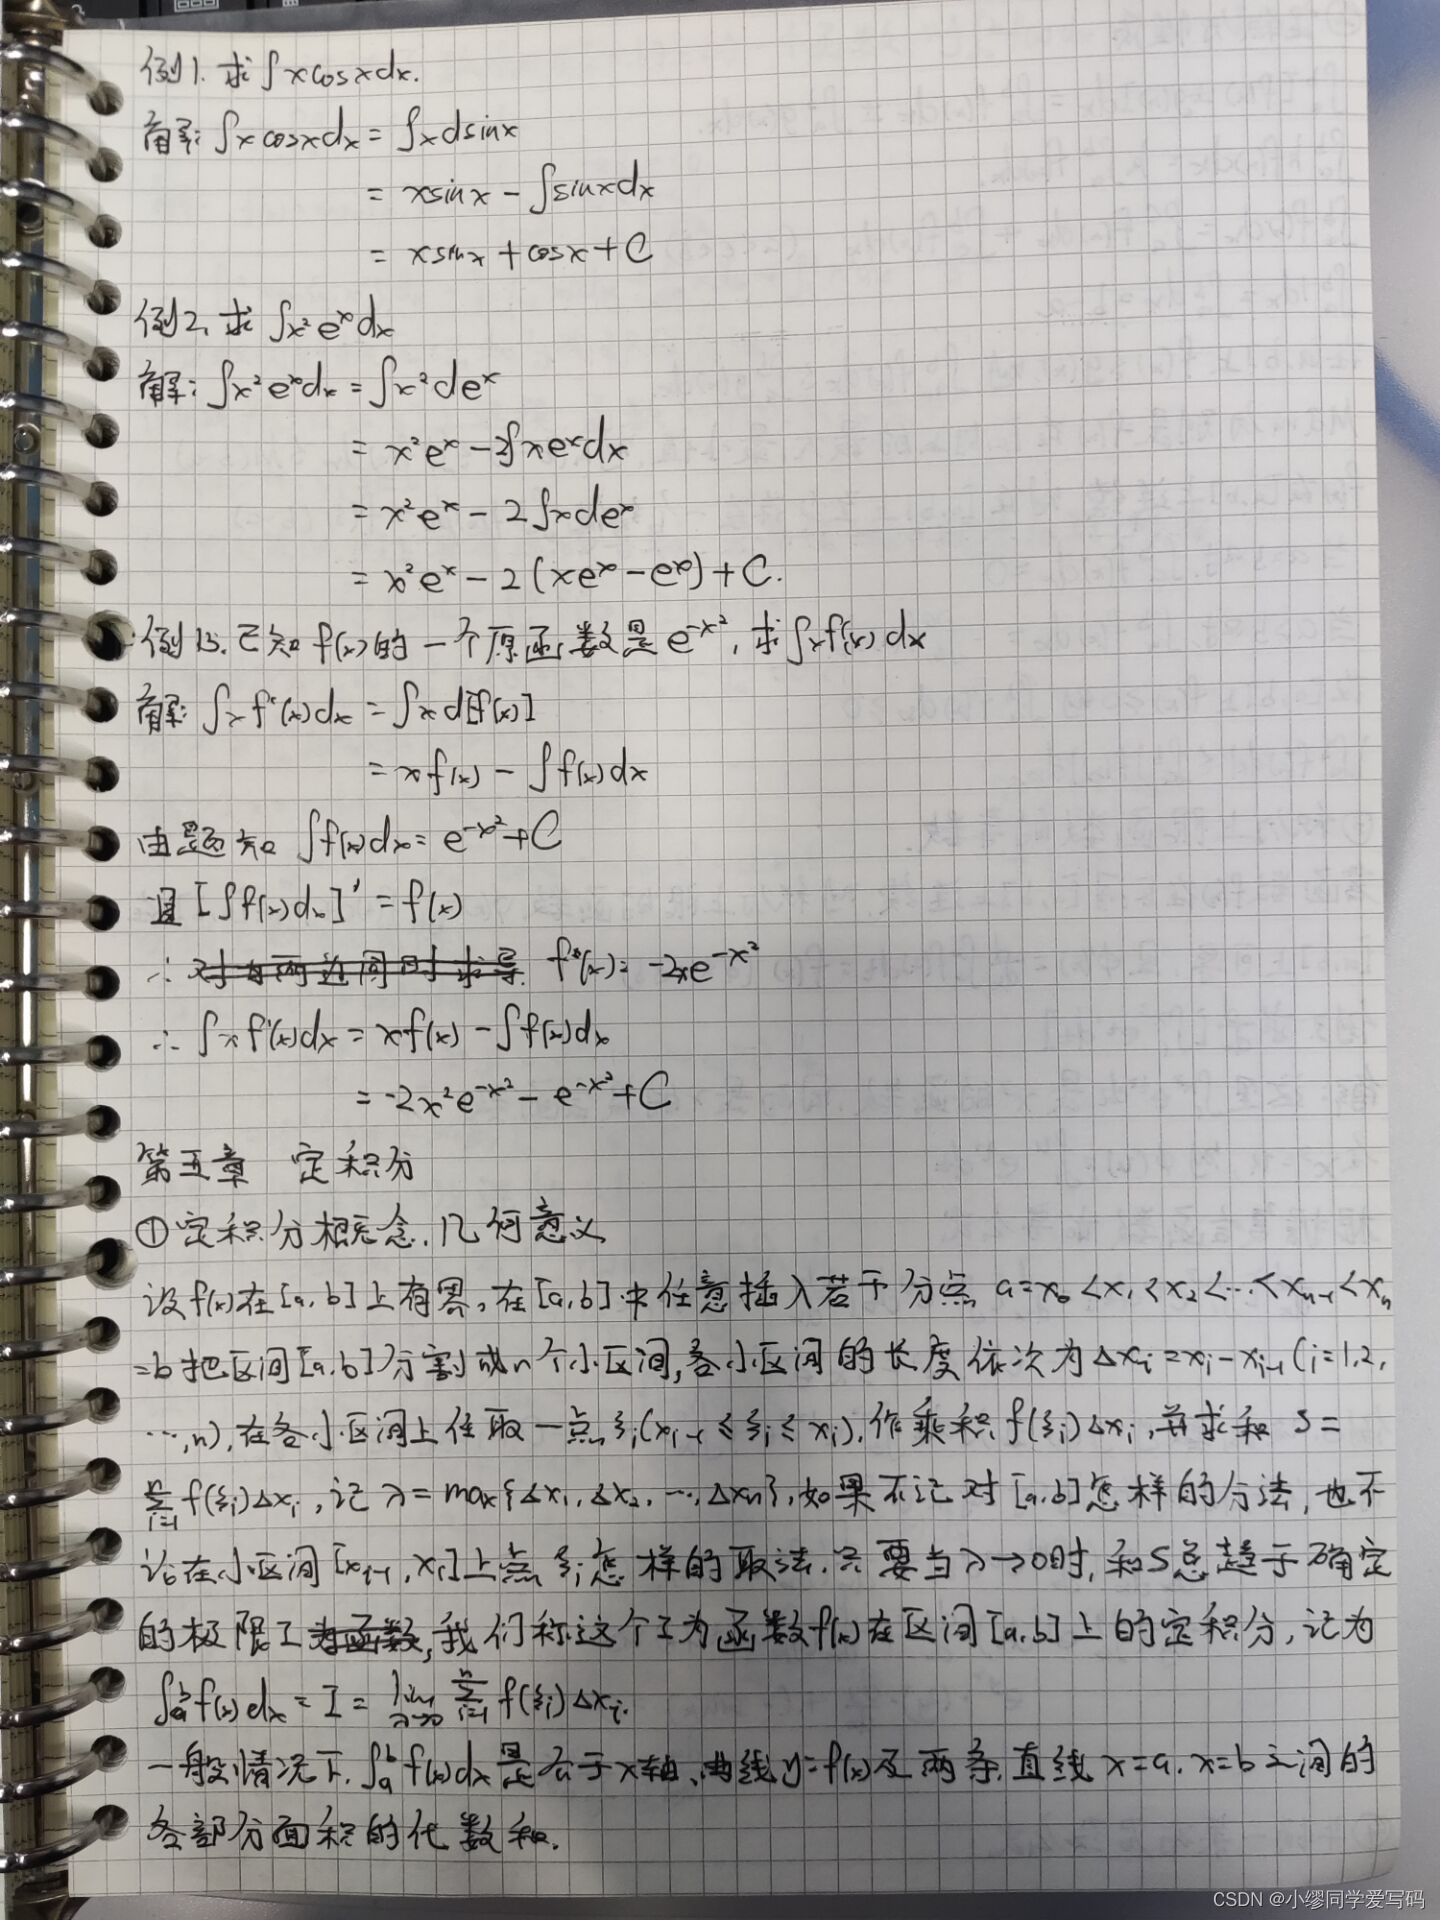 例1. 求∫xcosxdx.
解:∫xcosxdx=∫xdsinx
= xsinx-∫sinxdx
= xsinx+cosx+C
例2、求∫x²eˣdx
解:∫x²eˣdx=∫x²deˣ
= x²eˣ-2∫xeˣdx
= x²eˣ-2∫xdeˣ
= x²eˣ-2(xeˣ-eˣ)+C.
例13.已知f(x)的一个原函数是e^{-x²},求∫xf'(x)dx
解:∫xf'(x)dx=∫xd[f(x)]
= xf(x)-∫f(x)dx
由题知 ∫f(x)dx=e^{-x²}+C
且[∫f(x)dx]'=f(x)
∴ f(x)=-2xe^{-x²}
∴∫xf'(x)dx=xf(x)-∫f(x)dx
=-2x²e^{-x²}-e^{-x²}+C
第五章 定积分
①定积分概念.几何意义
设f(x)在[a,b]上有界,在[a,b]中任意插入若干分点 a=x₀<x₁<x₂<…<xₙ₋₁<xₙ
=b把区间[a,b]分割成n个小区间,各小区间的长度依次为Δxᵢ=xᵢ-xᵢ₋₁(i=1,2,
…,n),在各小区间上任取一点ξᵢ(xᵢ₋₁≤ξᵢ≤xᵢ),作乘积f(ξᵢ)Δxᵢ,并求和 S=
∑ⁿᵢ₌₁f(ξᵢ)Δxᵢ,记λ=max{Δx₁,Δx₂,…,Δxₙ},如果不论对[a,b]怎样的分法,也不
论在小区间[xᵢ₋₁,xᵢ]上点ξᵢ怎样的取法.只要当λ→0时,和S总趋于确定
的极限I,我们称这个I为函数f(x)在区间[a,b]上的定积分,记为
∫ₐᵇf(x)dx=I=lim_{λ→0}∑ⁿᵢ₌₁f(ξᵢ)Δxᵢ.
一般情况下.∫ₐᵇf(x)dx是介于x轴、曲线y=f(x)及两条直线x=a.x=b之间的
各部分面积的代数和.
CSDN @小缪同学爱写码